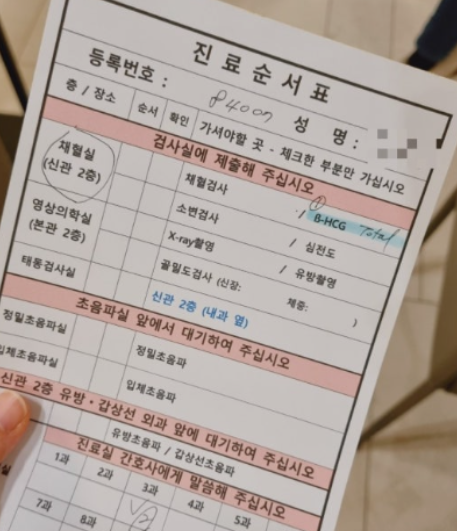 진료순서표
등록번호 : 성 명 :
층 / 장소 순서 확인 가셔야할 곳 - 체크한 부분만 가십시오
검사실에 제출해 주십시오
채혈실
(신관 2층)
채혈검사
①
소변검사 / B-HCG Total
영상의학실
(본관 2층)
X-ray촬영 / 심전도
골밀도검사 (신장: 체중: )
/ 유방촬영
태동검사실
신관 2층 (내과 옆)
초음파실 앞에서 대기하여 주십시오
정밀초음파실 정밀초음파
입체초음파실 입체초음파
신관 2층 유방·갑상선 외과 앞에 대기하여 주십시오
유방초음파 / 갑상선초음파
진료실 간호사에게 말씀해 주십시오
1과 2과 3과 4과 5과
7과 8과